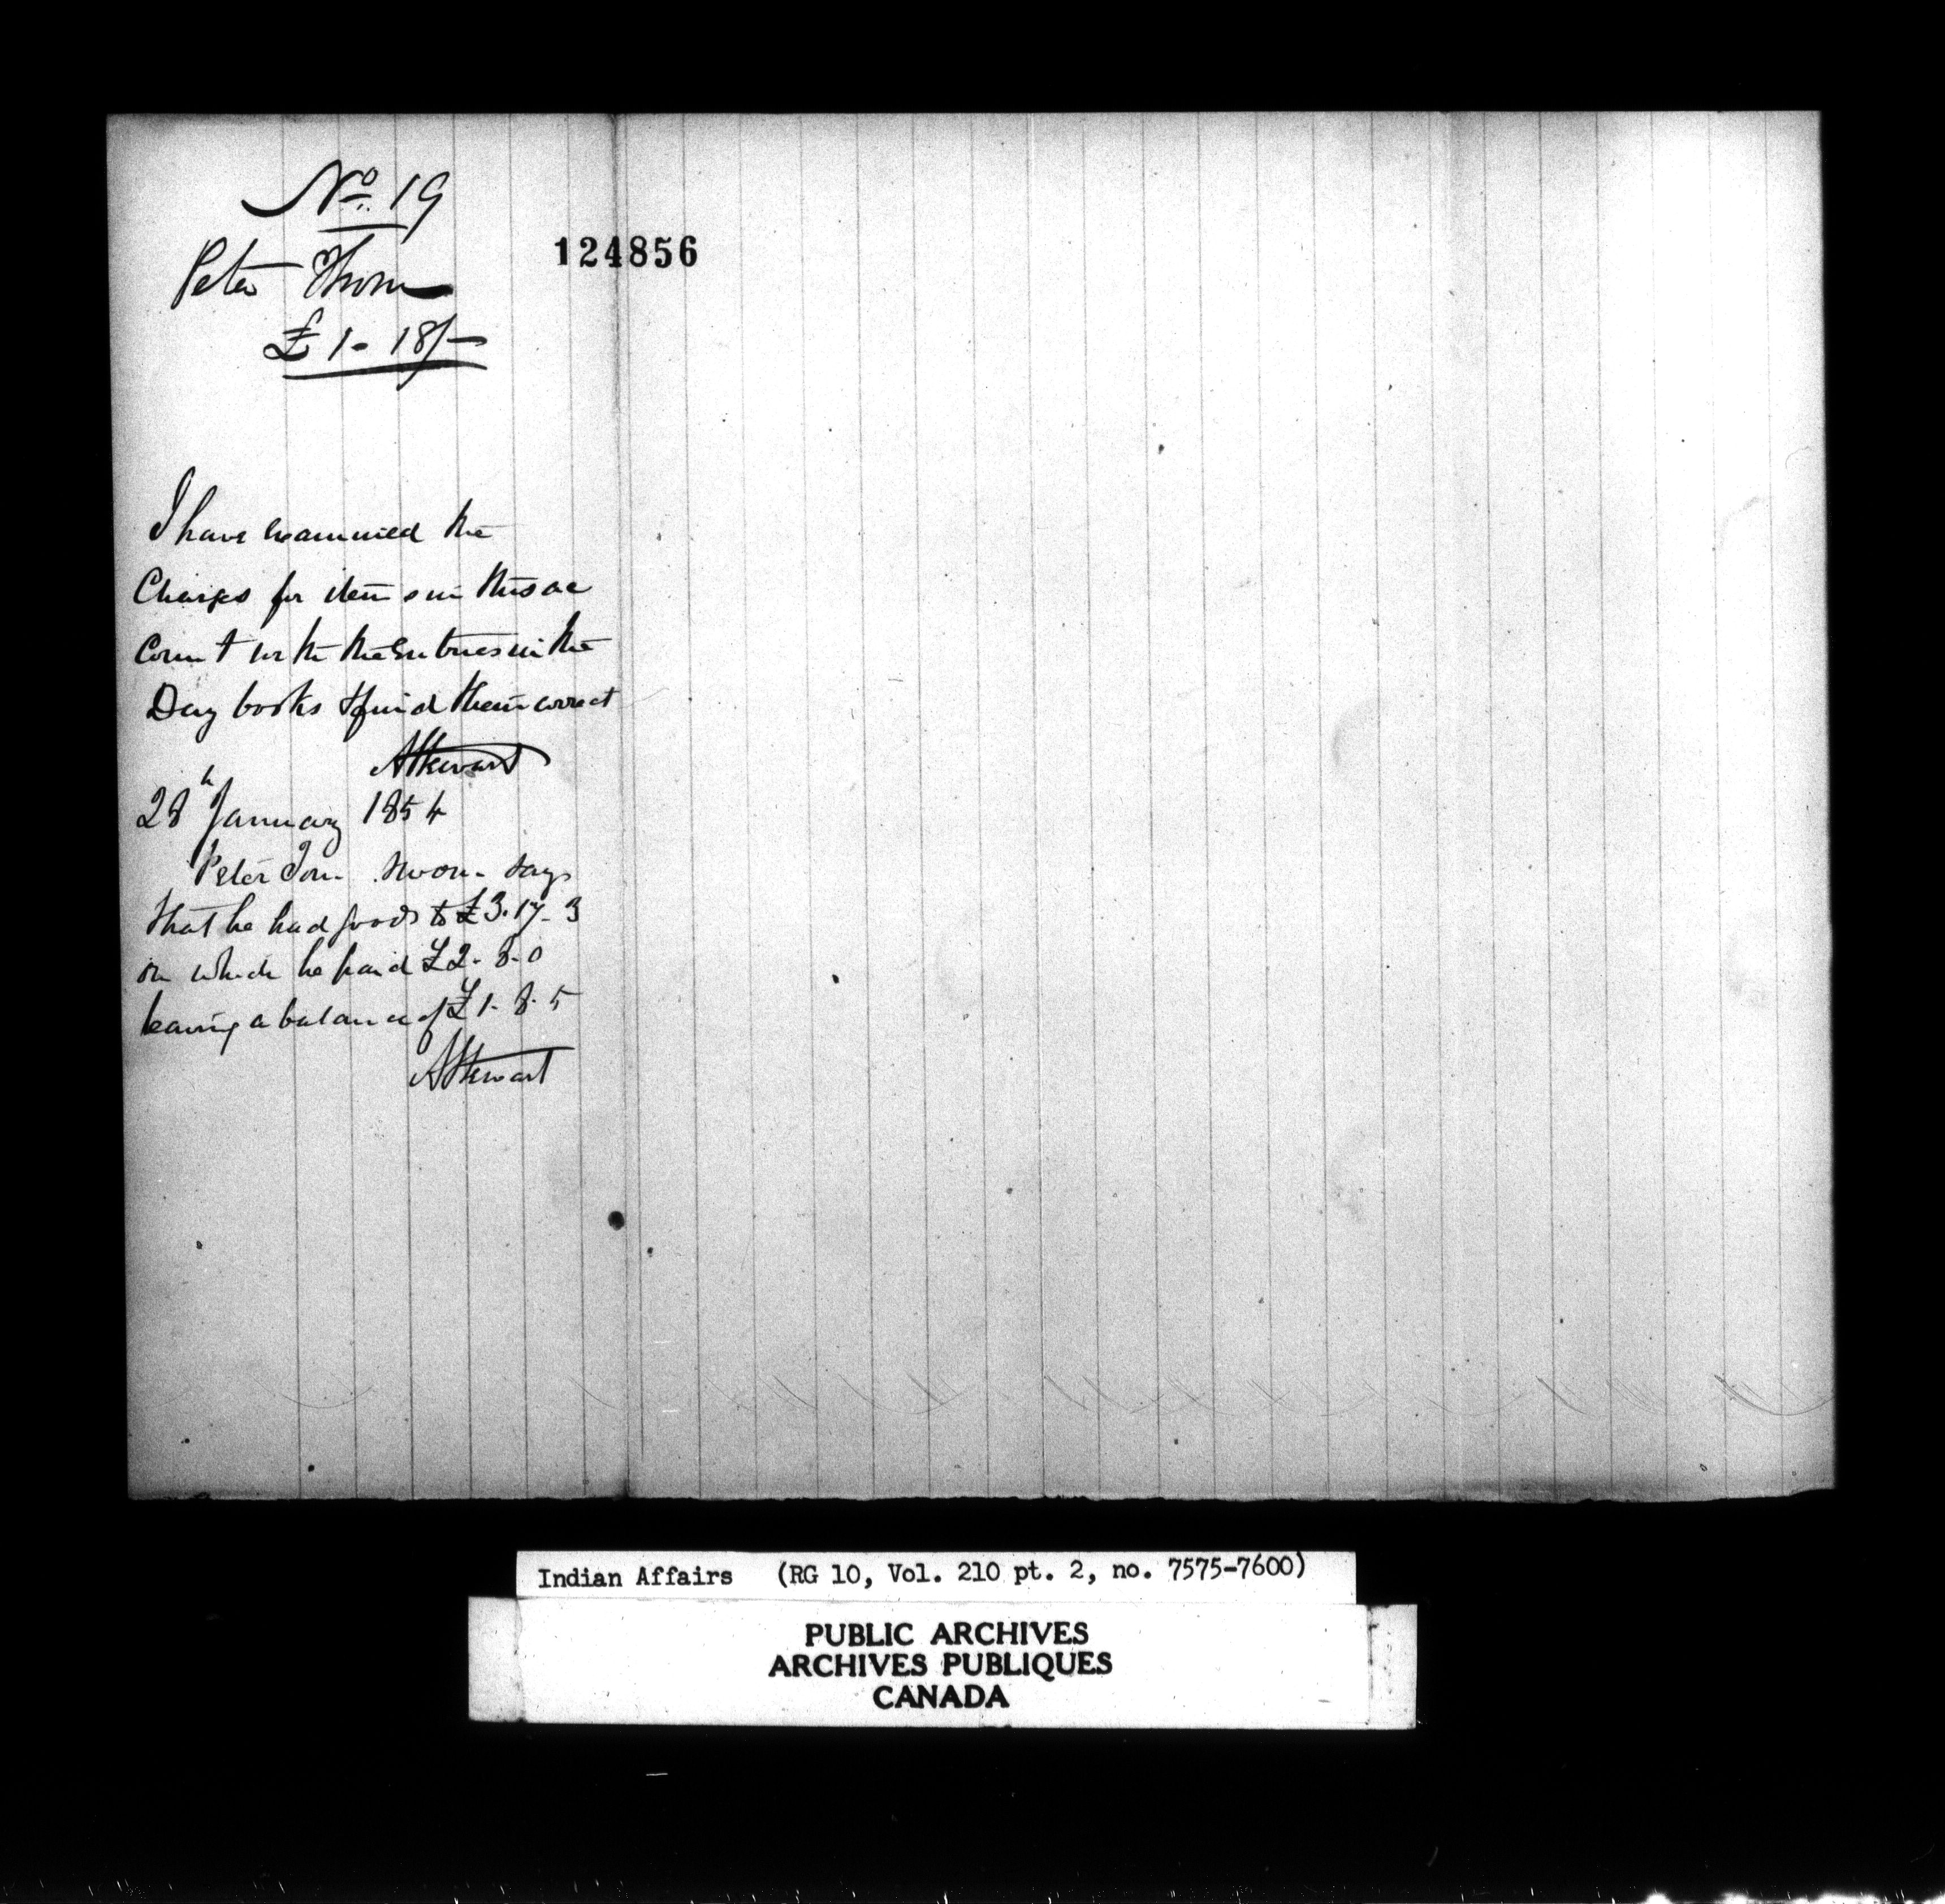 No. 19
124856
Peter Thom
£ 1 - 18/-
I have examined the
Charges for items in this ac
count with the Entries in the
Day books & find them correct
AStewart
28th January 1854
Peter Tom sworn says
that he had goods to £3.17-3
on which he paid £2-8-0
leaving a balance of £1-8-5
AStewart
Indian Affairs (RG 10, Vol. 210 pt. 2, no. 7575-7600)
PUBLIC ARCHIVES
ARCHIVES PUBLIQUES
CANADA